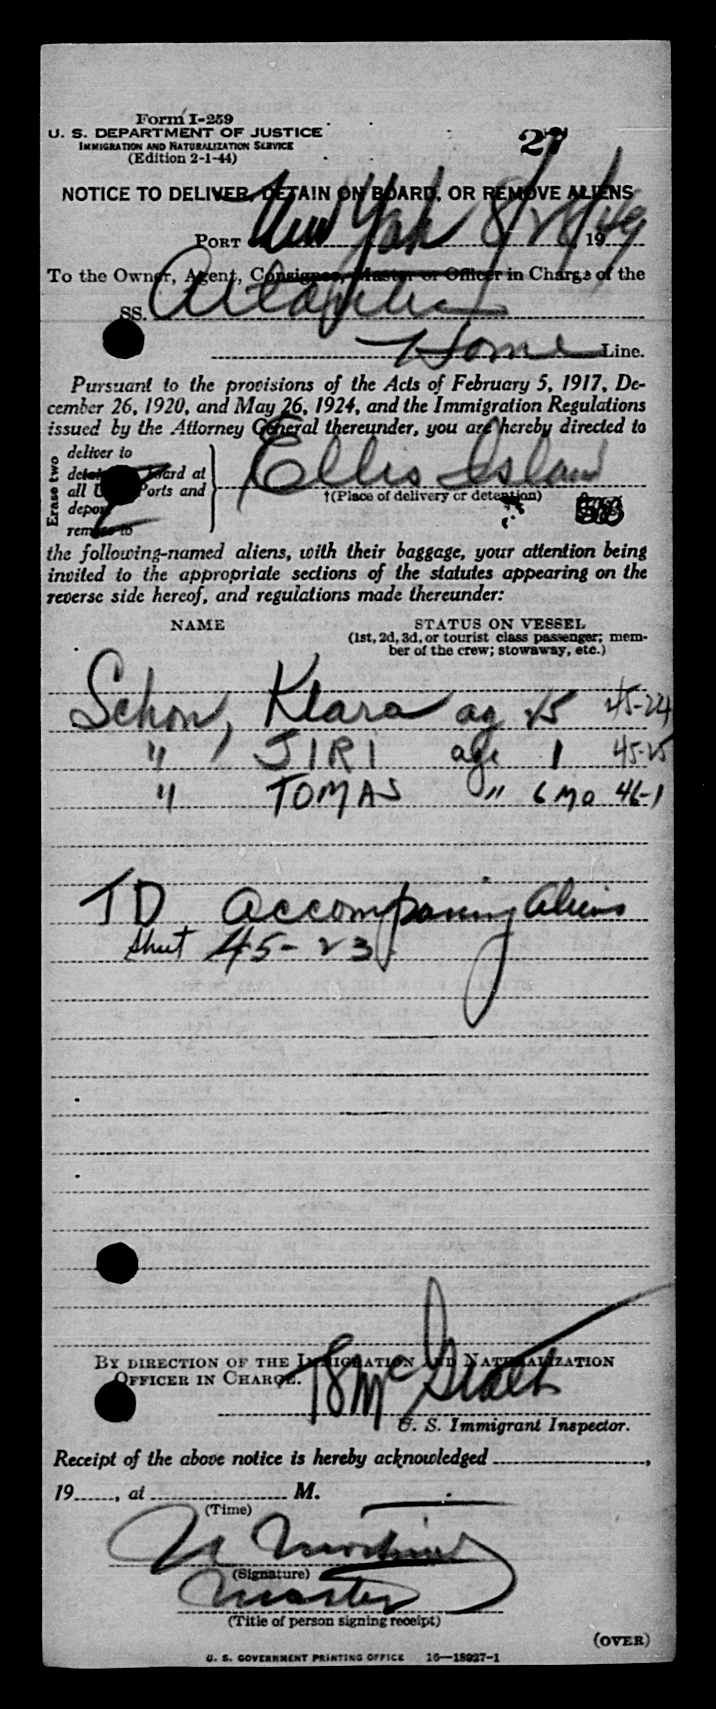 Form I-259
U. S. DEPARTMENT OF JUSTICE
IMMIGRATION AND NATURALIZATION SERVICE
(Edition 2-1-44)
27
NOTICE TO DELIVER, DETAIN ON BOARD, OR REMOVE ALIENS
PORT New York 8/28, 1949
To the Owner, Agent, Consignee, Master or Officer in Charge of the
SS. Atlantic
Home Line.
Pursuant to the provisions of the Acts of February 5, 1917, De-
cember 26, 1920, and May 26, 1924, and the Immigration Regulations
issued by the Attorney General thereunder, you are hereby directed to
Erase two
deliver to
detain on board at
all U. S. Ports and
deport
remove to
Ellis Island
†(Place of delivery or detention)
the following-named aliens, with their baggage, your attention being
invited to the appropriate sections of the statutes appearing on the
reverse side hereof, and regulations made thereunder:
NAME STATUS ON VESSEL
(1st, 2d, 3d, or tourist class passenger; mem-
ber of the crew; stowaway, etc.)
Schon, Klara ag 25 45-24
" JIRI age 1 45-25
" TOMAS " 6 MO 46-1
TD accompaning aliens
Shut 45-23
BY DIRECTION OF THE IMMIGRATION AND NATURALIZATION
OFFICER IN CHARGE.
U. S. Immigrant Inspector.
Receipt of the above notice is hereby acknowledged ,
19 , at M.
(Time)
(Signature)
Master
(Title of person signing receipt)
(OVER)
U. S. GOVERNMENT PRINTING OFFICE 16—18927-1